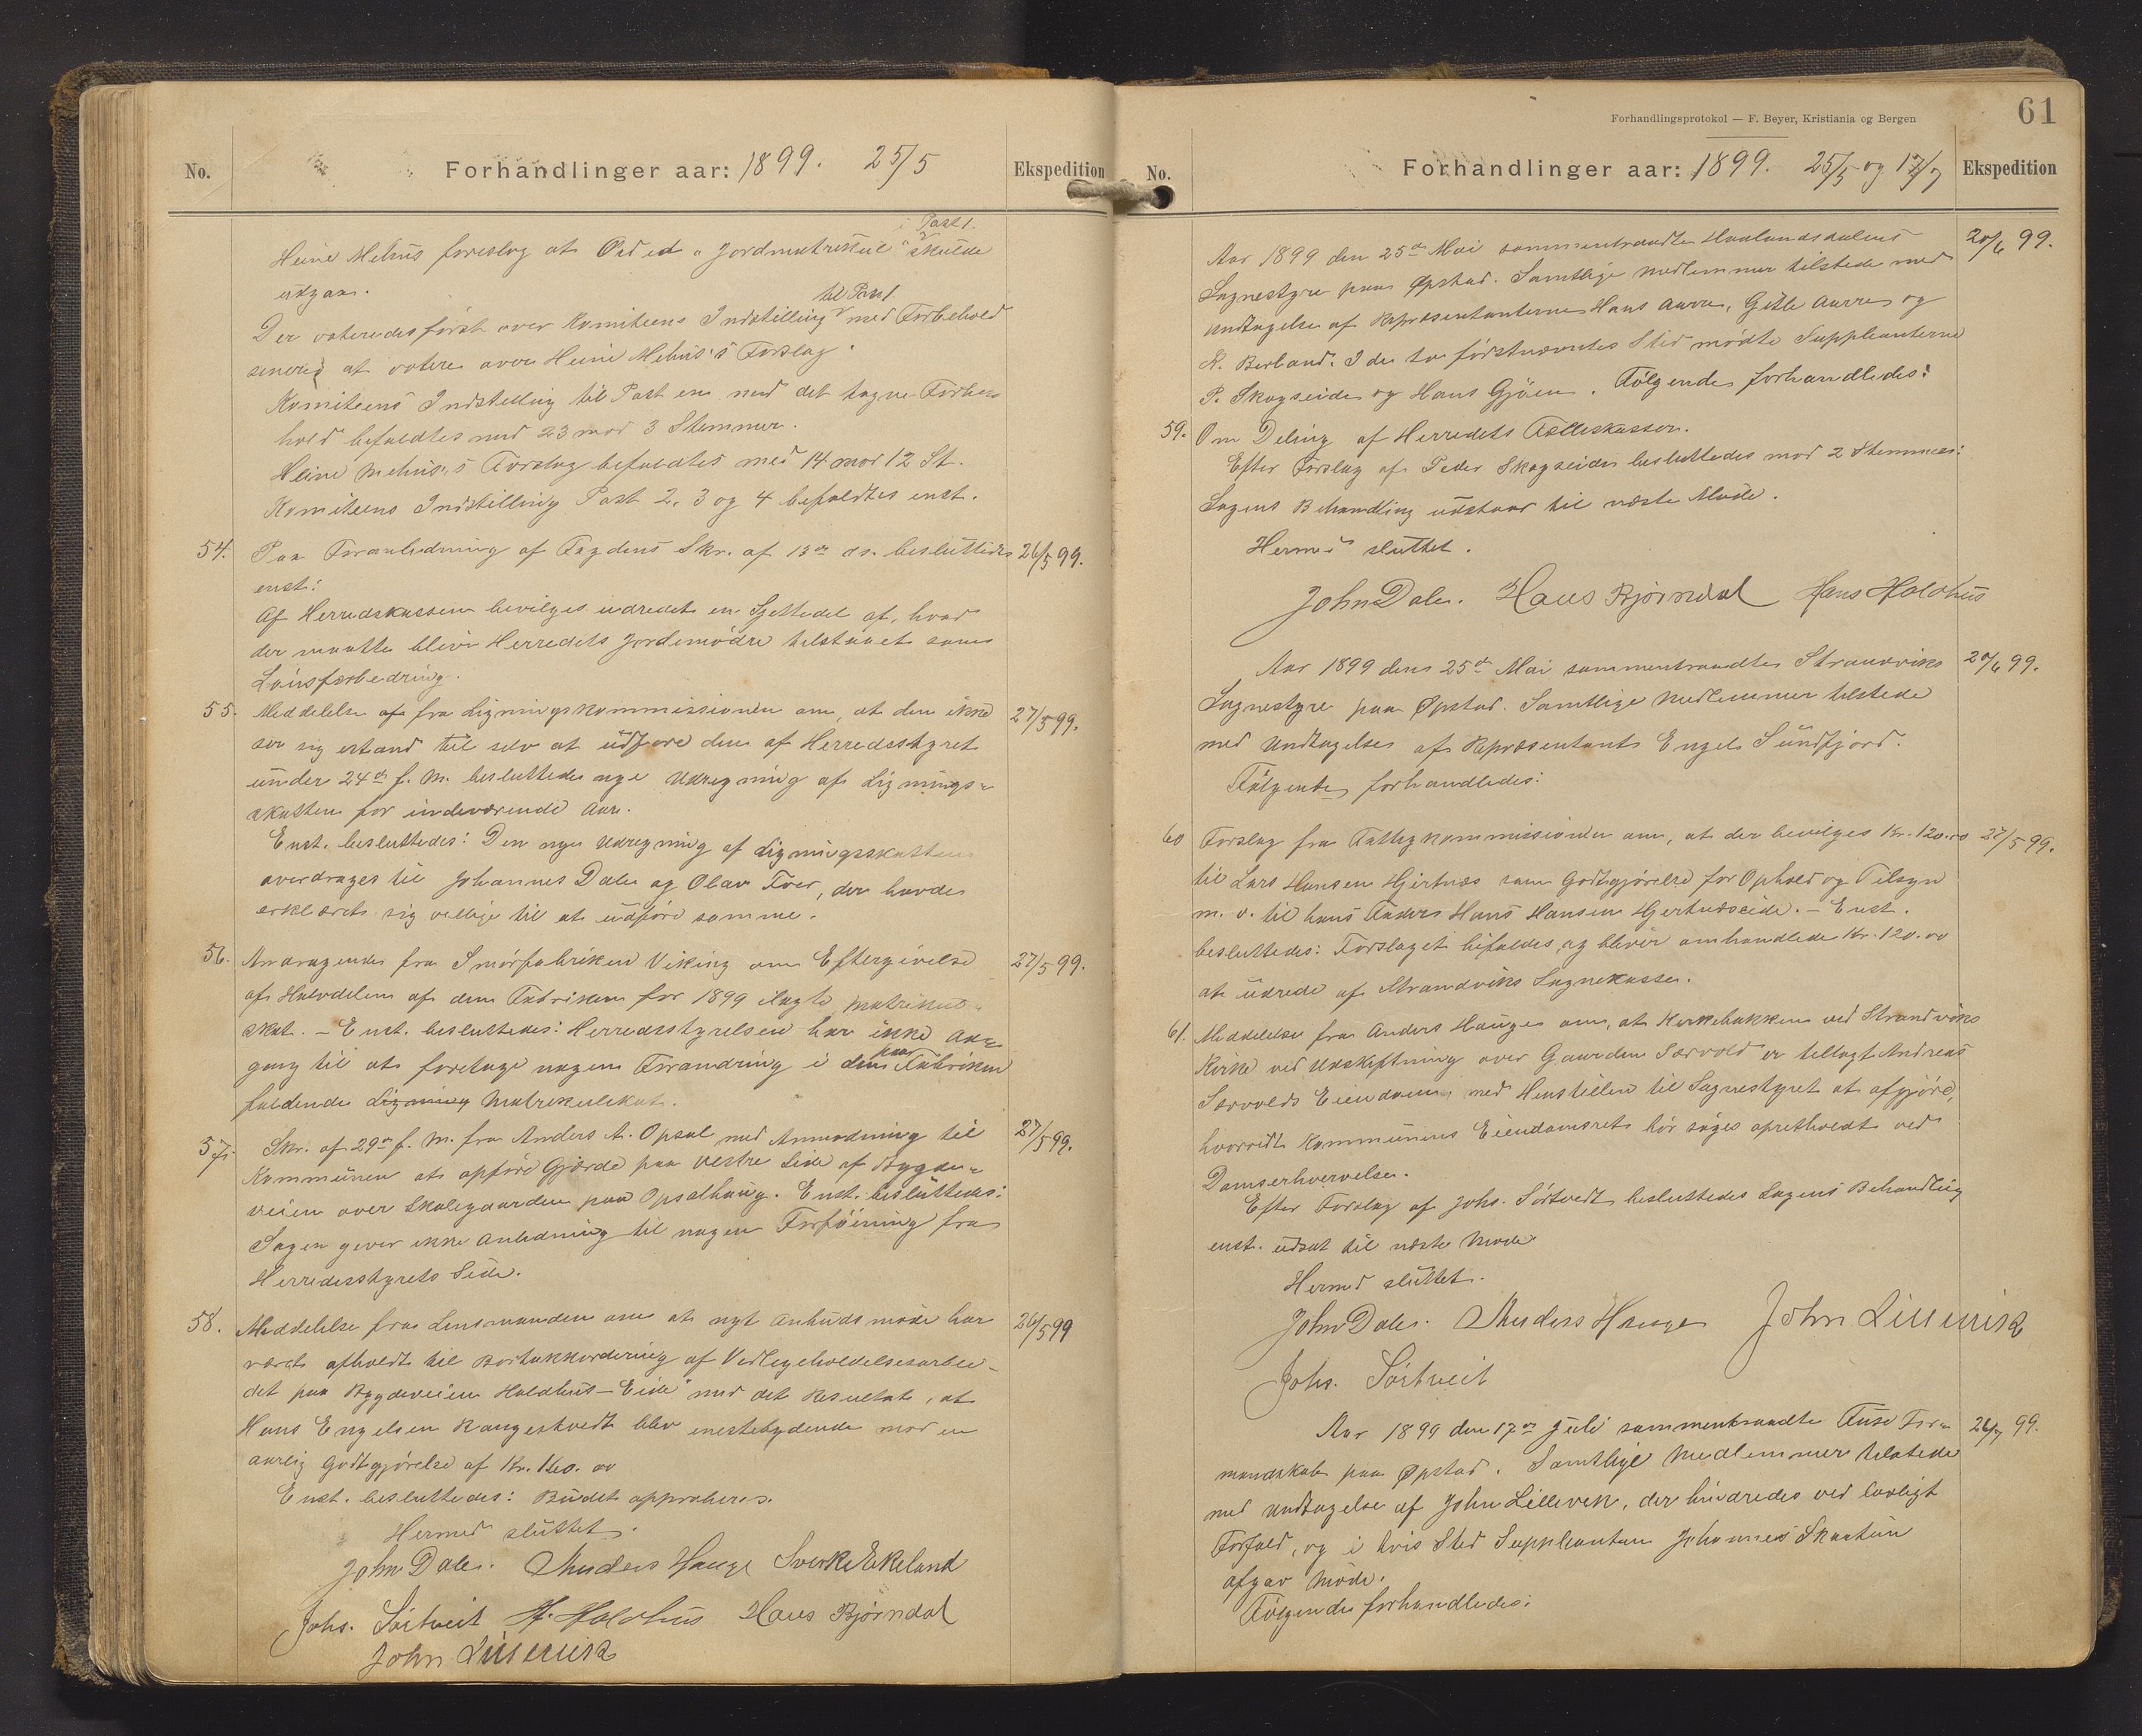 No. Forhandlinger aar: 1899. 25/5 Ekspedition
i Post 1.
Heine Mehus foreslog at Ordet "Jordmatrikul" skulde
udgaa.
til Post 1
Der voteredes först over Komiteens Indstilling med Forbehold
senere at votere over Heine Mehus's Forslag.
Komiteens Indstilling til Post en med det tagne Forbe-
hold bifaldtes med 23 mod 3 Stemmer.
Heine Mehus's Forslag bifaldtes med 14 mod 12 St.
Komiteens Indstilling Post 2, 3 og 4 bifaldtes enst.
54. Paa Foranledning af Fogdens Skr. af 13de ds. besluttedes 26/5 99.
enst:
Af Herredskassen bevilges udredet en Sjettedel af, hvad
der maatte blive Herredets Jordemödre tilstaaet som
Lönsforbedring.
55. Meddelelse af fra Ligningskommissionen om, at den ikke 27/5 99.
ser sig istand til selv at udföre den af Herredsstyret
under 24de f. M. besluttede nye Udregning af Lignings-
skatten for indeværende Aar.
Enst. besluttedes: Den nye Udregning af Ligningsskatten
overdrages til Johannes Dale og Olav Tveit, der havde
erklæret sig villige til at udföre samme.
56. Andragende fra Smörfabriken Viking om Eftergivelse 27/5 99.
af Halvdelen af den Fabriken for 1899 ilagte Matrikul-
skat. - Enst. besluttedes: Herredsstyrelsen har ikke Ad-
gang til at foretage nogen Forandring i den paa Fabriken
faldende Ligning Matrikulskat.
57. Skr. af 29de f. M. fra Anders A. Opsal med Anmodning til 27/5 99.
Kommunen at opföre Gjærde paa vestre Side af Bygde-
veien over Skolegaarden paa Opsalhaug. Enst. besluttedes:
Sagen giver ikke Anledning til nogen Forföining fra
Herredsstyrets Side.
58. Meddelelse fra Lensmanden om at nyt Anbudsmöde har 26/5 99
været afholdt til Bortakkordering af Vedligeholdelsesarbei-
det paa Bygdeveien Holdhus-Eide" med det Resultat, at
Hans Engelsen Rangestvedt blev enestebydende mod en
aarlig Godtgjörelse af Kr. 160.00
Enst. besluttedes: Budet approberes.
Hermed sluttet.
John Dale. Anders Hauge Sverke Eikeland
Johs. Sörtveit H. Holdhus Hans Björndal
John Lillevik
Forhandlingsprotokol — F. Beyer, Kristiania og Bergen 61
No. Forhandlinger aar: 1899. 25/5 og 17/7 Ekspedition
Aar 1899 den 25de Mai sammentraadte Haalandsdalens 20/6 99.
Sognestyre paa Opstad. Samtlige Medlemmer tilstede med
Undtagelse af Repræsentanterne Hans Aarre, Gitle Aarre og
N. Berland. I de to förstnævntes Sted mödte Suppleanterne
P. Skogseide og Hans Gjöen. Fölgende forhandledes:
59. Om Deling af Herredets Fælleskasser.
Efter Forslag af Peder Skogseide besluttedes mod 2 Stemmer:
Sagens Behandling udstaar til næste Möde.
Hermed sluttet.
John Dale. Hans Björndal Hans Holdhus
Aar 1899 den 25de Mai sammentraadte Strandviks 20/6 99.
Sognestyre paa Opstad. Samtlige Medlemmer tilstede
med Undtagelse af Repræsentant Engel Sundfjord.
Fölgende forhandledes:
60 Forslag fra Fattigkommissionen om, at der bevilges Kr. 120.00 27/5 99.
til Lars Hansen Hjertnæs som Godtgjörelse for Ophold og Tilsyn
m. v. til hans Fader Hans Hansen Hjertnæseide. - Enst.
besluttedes: Forslaget bifaldes og bliver omhandlede Kr. 120.00
at udrede af Strandviks Sognekasse.
61. Meddelelse fra Anders Hauge om, at Kirkebakken ved Strandviks
Kirke ved Udskiftning over Gaarden Særvold er tillagt Andreas
Særvolds Eiendom, med Henstillen til Sognestyret at afgjöre,
hvorvidt Kommunens Eiendomsret bör söges opretholdt ved
Domserhvervelse.
Efter Forslag af Johs. Sörtvedt besluttedes Sagens Behandling
enst. udsat til næste Möde
Hermed sluttet.
John Dale. Anders Hauge John Lillevik
Johs. Sörtveit
Aar 1899 den 17de Juli sammentraadte Fuse For- 26/7 99.
mandskab paa Opstad. Samtlige Medlemmer tilstede
med Undtagelse af John Lillevik, der hindredes ved lovligt
Forfald, og i hvis Sted Suppleanten Johannes Skaatun
afgav Möde.
Fölgende forhandledes: